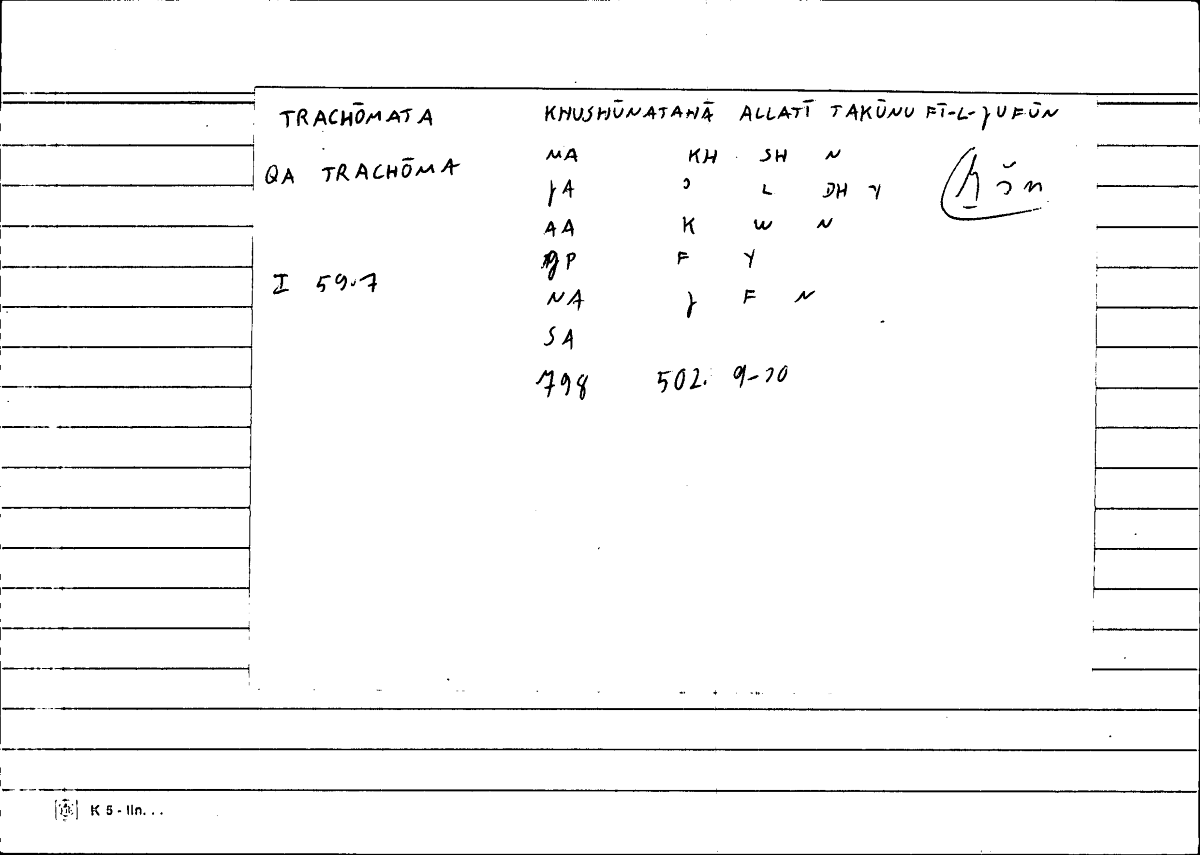 TRACHŌMATA KHUSHŪNATAHĀ ALLATĪ TAKŪNU FĪ-L-ɈUFŪN
QA TRACHŌMA MA KH SH N
ɈA ʾ L DH Y
AA K W N
P F Y
I 59.7
NA Ɉ F N
SA
798 502. 9-10
K 5 - lin. . .